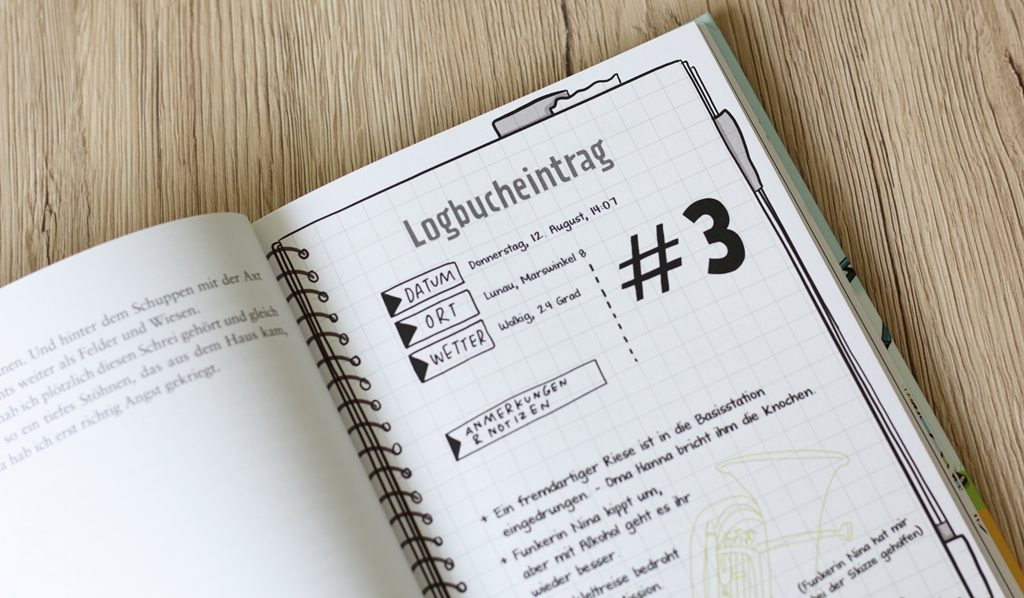 nen. Und hinter dem Schuppen mit der Axt
ts weiter als Felder und Wiesen.
hab ich plötzlich diesen Schrei gehört und gleich
so ein tiefes Stöhnen, das aus dem Haus kam,
a hab ich erst richtig Angst gekriegt.
Logbucheintrag
#3
DATUM Donnerstag, 12. August, 14:07
ORT Lunau, Marswinkel 8
WETTER Wolkig, 24 Grad
ANMERKUNGEN
& NOTIZEN
+ Ein fremdartiger Riese ist in die Basisstation
eingedrungen. - Oma Hanna bricht ihm die Knochen.
+ Funkerin Nina kippt um,
aber mit Alkohol geht es ihr
wieder besser.
Weltreise bedroht
Mission.
(Funkerin Nina hat mir
bei der Skizze geholfen)